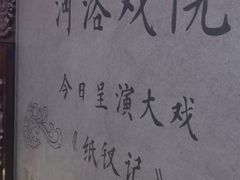 河洛戏院
今日呈演大戏
《纸钗记》